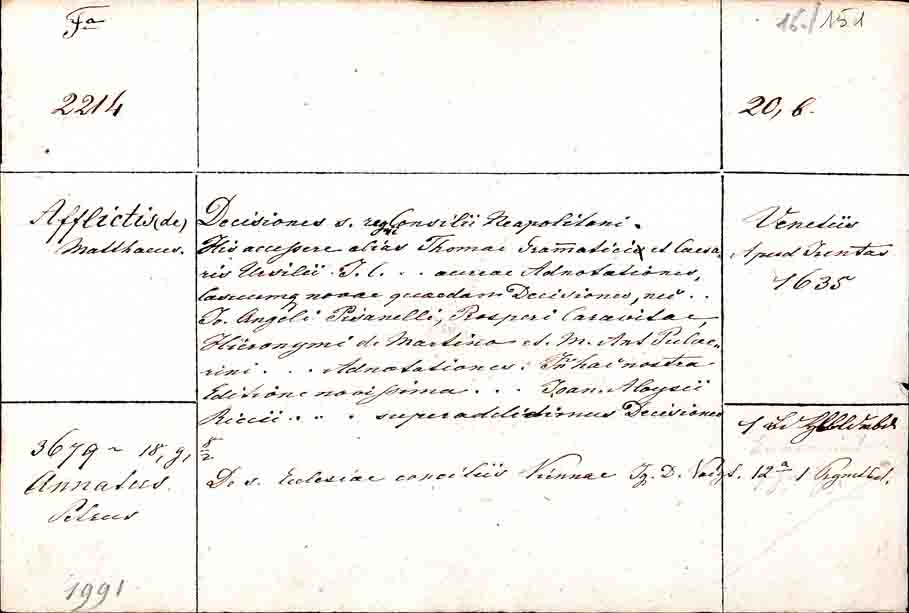 Fa
151
2214
20, 6.
Afflictis (de)
Matthaeus.
Decisiones s. reg. Consilii Neapolitani.
His accessere alias Thomae Grammatici et Caesa-
ris Ursilii J. C. . . aureae Adnotationes,
novae quaedam Decisiones, nec . .
Jo. Angeli Pisanelli, Prosperi Caravitae,
Hieronymi de Martino et M. Ant. Pulve-
rini . . . Adnotationes; In hac nostra
Editione novissima . . . Joan. Aloysii
Riccii . . . superadditionus Decisiones
Venetiis
Apud Juntas
1635
3679 ~ 18, g, 8/2
Annatus.
Petrus
De s. Eclesiae conciliis Viennae D. Voigt. 12a 1
1991